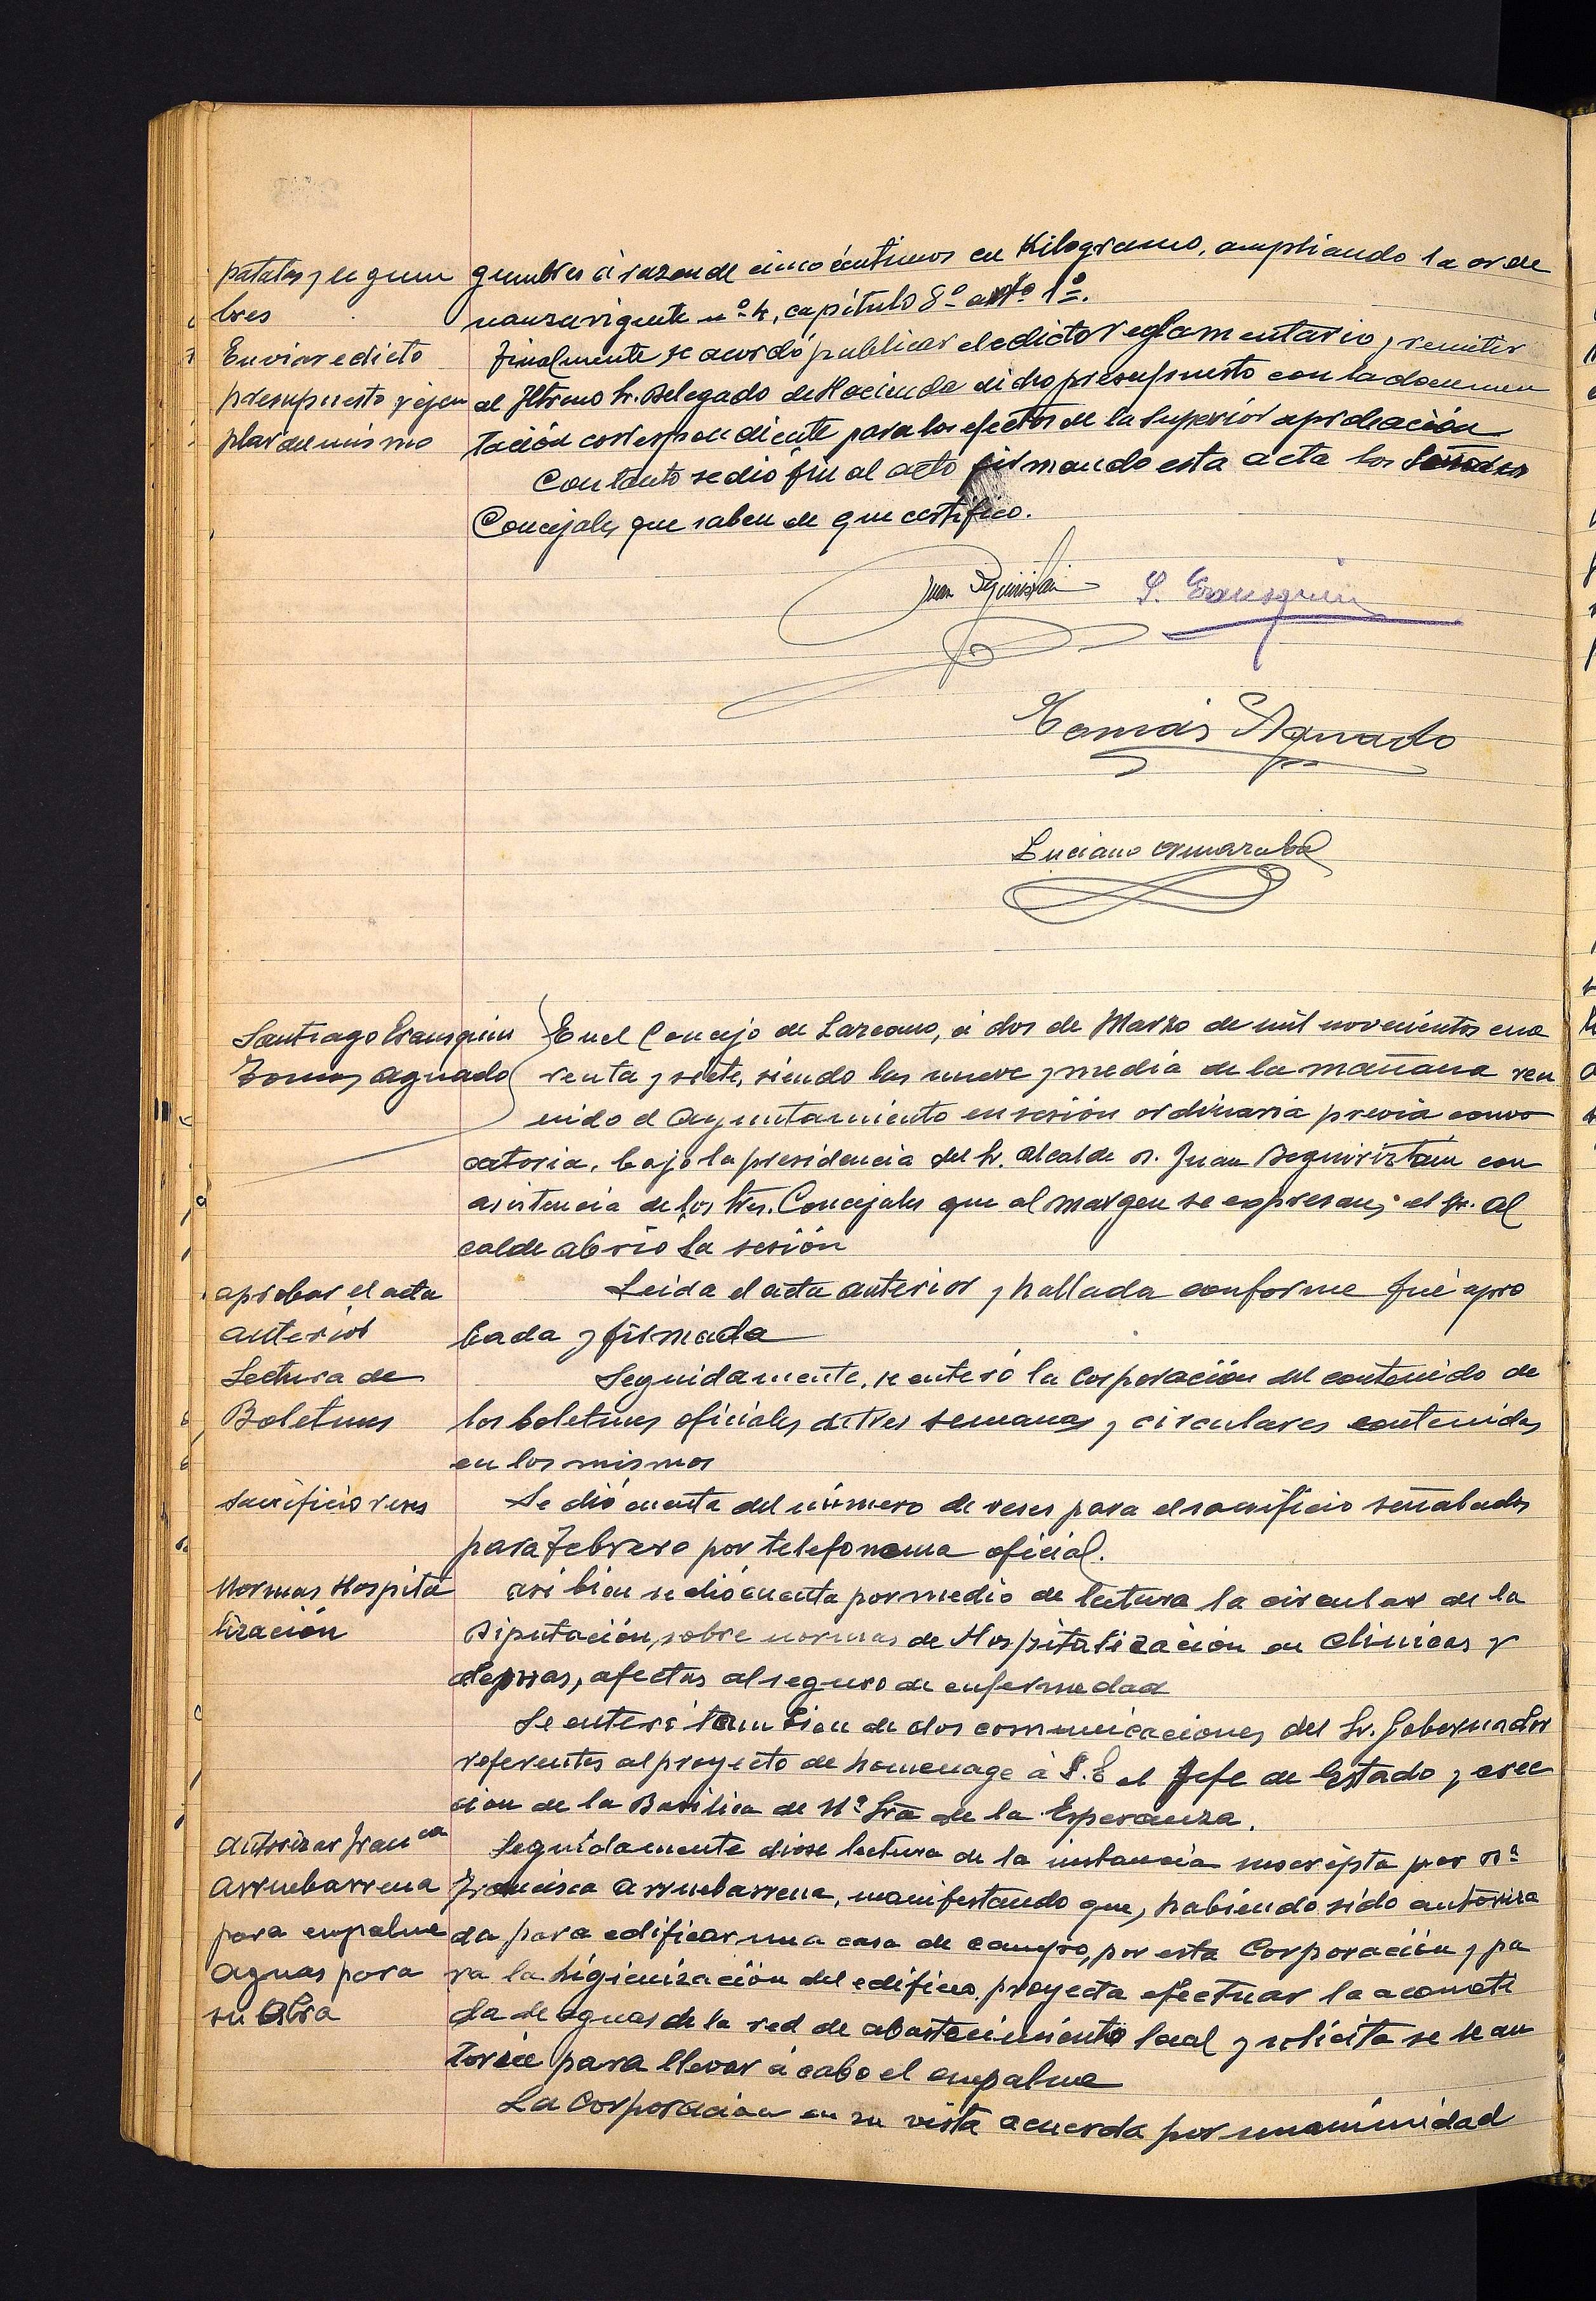 patatas y legum
bres
Enviar edicto
presupuesto y ejem
plar del mismo
gumbres á razon de cinco céntimos en Kilogramo, ampliando la orde
nanza vigente nº 4, capítulo 8º artº 1º.
Finalmente se acordó publicar el edicto reglamentario y remitir
al Iltrmo Sr. Delegado de Hacienda dicho presupuesto con la documen
tación correspondiente para los efectos de la superior aprobación
Con tanto se dió fin al acto firmando esta acta los Señores
Concejales que saben de que certifico.
Juan Beguiristain
S. Erausquin
Tomás Aguado
Luciano
Santiago Erausquin
Tomas Aguado
En el Concejo de Lazcano, á dos de Marzo de mil novecientos cua
renta y siete, siendo las nueve y media de la mañana reu
nido el Ayuntamiento en sesión ordinaria previa convo
catoria, bajo la presidencia del Sr. Alcalde D. Juan Beguiristain con
asistencia de los Sres. Concejales que al margen se expresan, el Sr. Al
calde abrió la sesión
aprobar el acta
anterior
Leida el acta anterior y hallada conforme fué apro
bada y firmada
Lectura de
Boletines
Seguidamente, se enteró la Corporación del contenido de
los boletines oficiales de tres semanas y circulares contenidas
en los mismos
Sacrificio reses
Se dió cuenta del número de reses para el sacrificio señaladas
para Febrero por telefonema oficial.
Normas Hospita
lización
Asi bien se dió cuenta por medio de lectura la circular de la
Diputación, sobre normas de Hospitalización en clinicas y
afectas al seguro de enfermedad
Se enteró tambien de dos comunicaciones del Sr. Gobernador
referentes al proyecto de homenage á S.E el Jefe de Estado y erec
cion de la Basilica de Nª Srª de la Esperanza.
Autorizar Franca
Arruebarrena
para empalme
aguas para
su obra
Seguidamente diose lectura de la instancia suscripta por Dª
Francisca Arruebarrena, manifestando que, habiendo sido autoriza
da para edificar una casa de campo, por esta Corporación y pa
ra la higienización del edificio, proyecta efectuar la acometi
da de aguas de la red de abastecimiento local y solicita se le au
torice para llevar á cabo el empalme
La Corporación en su vista acuerda por unanimidad